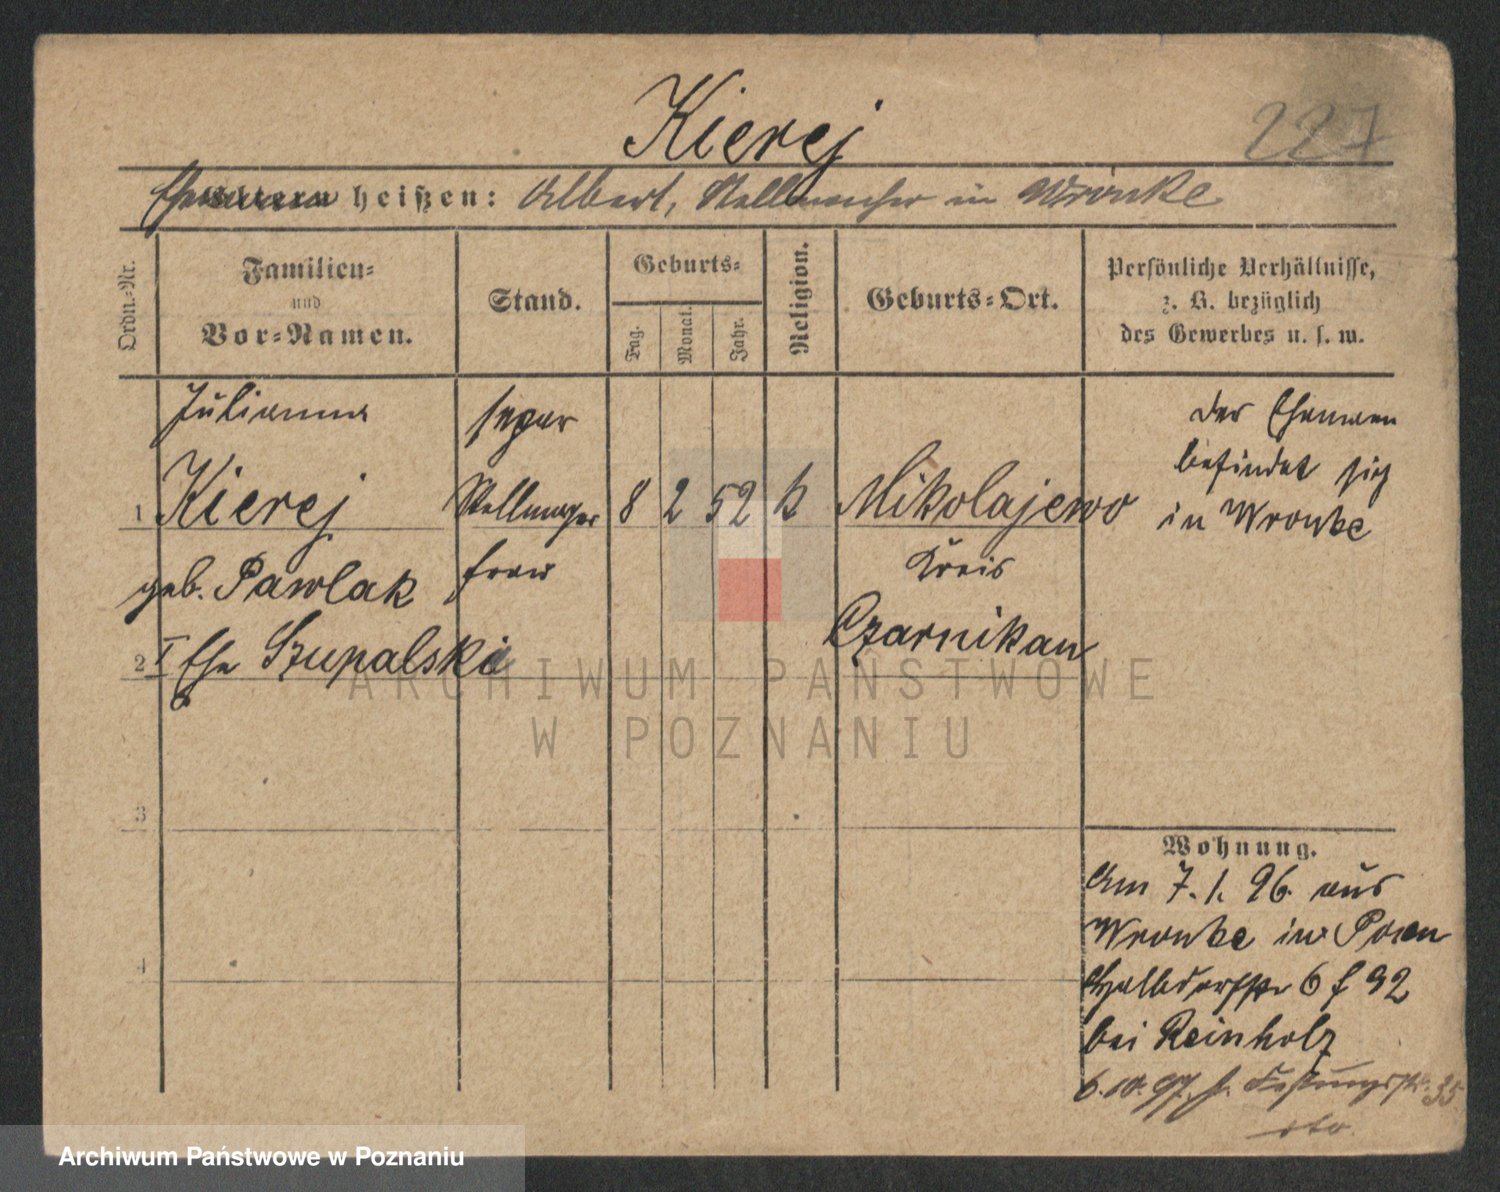 Kierej
227
Ehemann heißen: Albert, Stellmacher in Wronke
Ordn.-Nr.
Familien-
und
Vor-Namen.
Stand.
Geburts-
Tag.
Monat.
Jahr.
Religion.
Geburts-Ort.
Persönliche Verhältnisse,
z. B. bezüglich
des Gewerbes u. s. w.
Julianna
separ
1 Kierej
Stellmacher
8 2 52 k
Mikolajewo
geb. Pawlak
frau
Kreis
2 I Ehe Szupalski
Czarnikau
der Ehemann
befindet sich
in Wronke
3
4
Wohnung.
Am 7. 1. 96. aus
Wronke in Posen
Halbdorfstr 6 f 92
bei Reinholz
6.10.97. Festungsstr. 35
dto.
ARCHIWUM PAŃSTWOWE
W POZNANIU
Archiwum Państwowe w Poznaniu